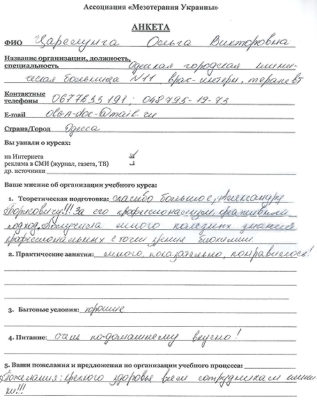 Ассоциация «Мезотерапия Украины»
АНКЕТА
ФИО Ольга Викторовна
Название организации, должность, Одесская городская клини-
специальность ческая больница №11 врач-интерн, терапевт
Контактные
телефоны
E-mail
Страна/Город Одесса
Вы узнали о курсах:
из Интернета
реклама в СМИ (журнал, газета, ТВ)
др. источники
Ваше мнение об организации учебного курса:
1. Теоретическая подготовка: спасибо большое, Александру
!!! За его профессионализм,
подход. Получила много полезных знаний
профессиональных с точки зрения биохимии
2. Практические занятия: много, показательно, понравилось!
3. Бытовые условия: хорошие
4. Питание: очень по-домашнему вкусно!
5. Ваши пожелания и предложения по организации учебного процесса:
Пожелания: крепкого здоровья всем сотрудникам клини-
ки!!!